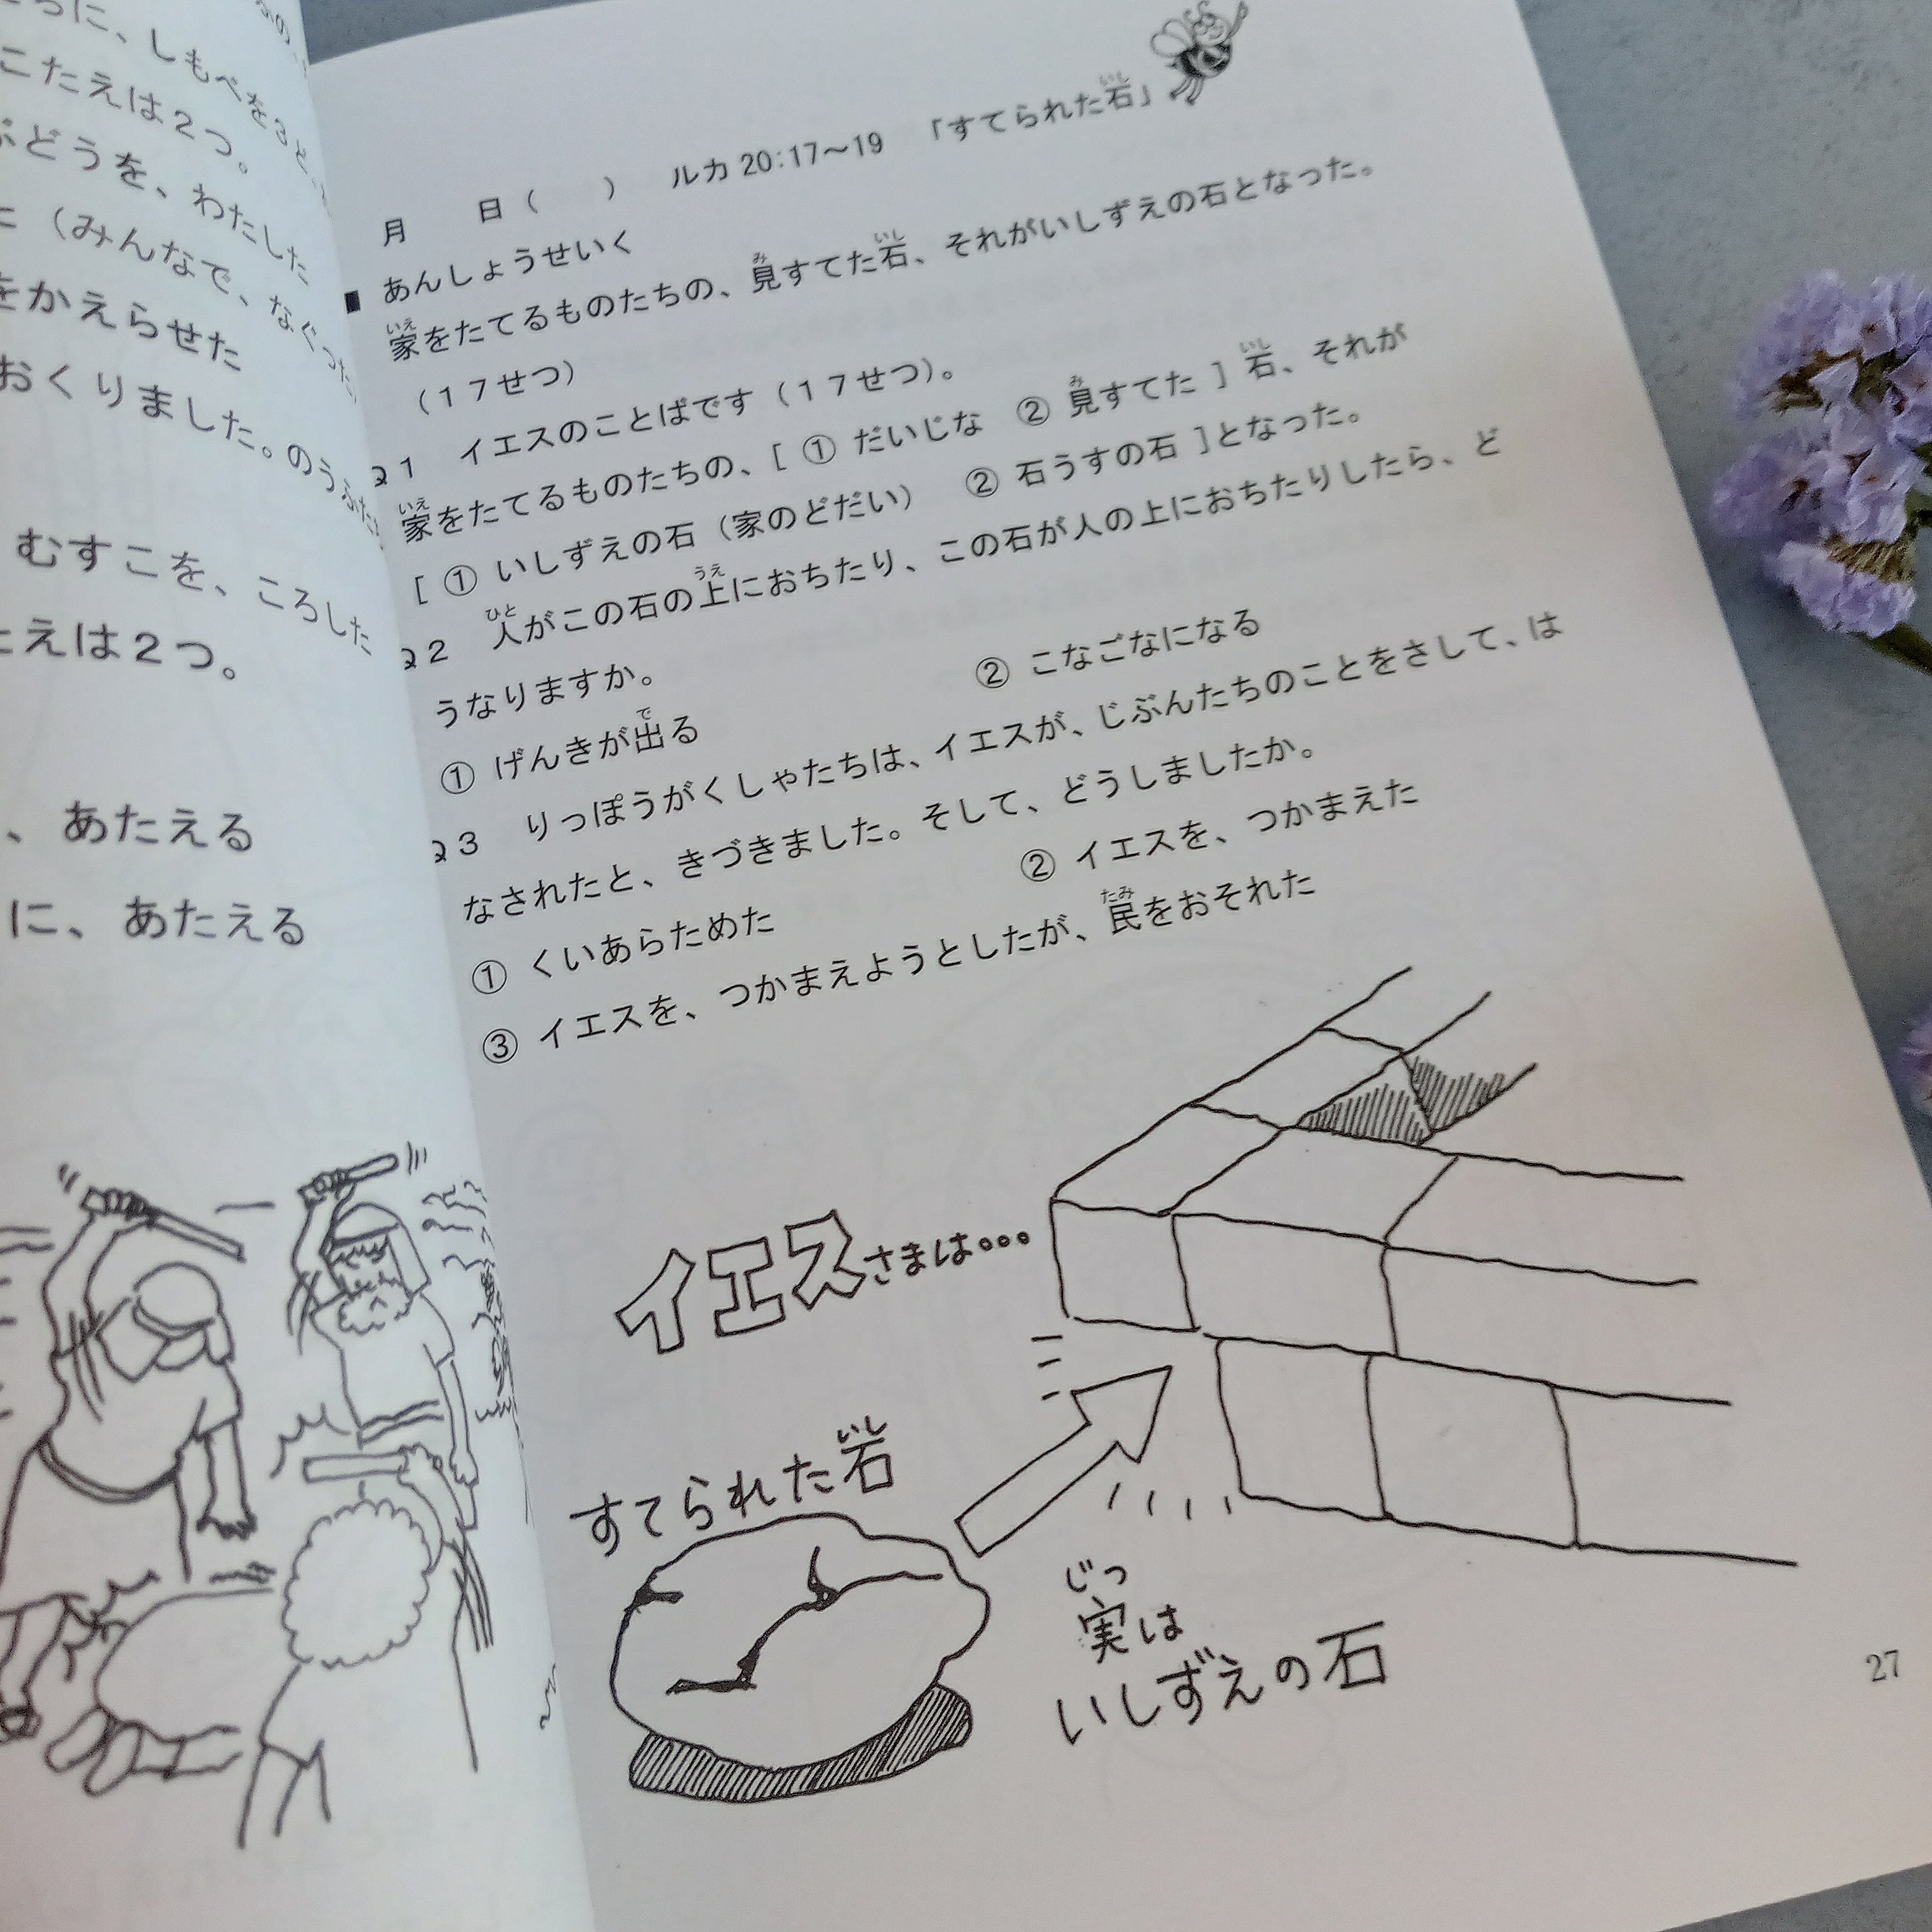 しもべを
こたえは2つ。
ぶどうを、わたした
(みんなで、なぐった
をかえらせた
おくりました。のうふた
むすこを、ころした
たえは2つ。
、あたえる
に、あたえる
月　日(　) ルカ 20:17〜19 「すてられた石」
いし
■ あんしょうせいく
家をたてるものたちの、見すてた石、それがいしずえの石となった。
いえ み いし
(17せつ)
Q1 イエスのことばです(17せつ)。
家をたてるものたちの、[ ① だいじな ② 見すてた ] 石、それが
いえ み いし
[ ① いしずえの石(家のどだい) ② 石うすの石 ]となった。
Q2 人がこの石の上におちたり、この石が人の上におちたりしたら、ど
ひと うえ
うなりますか。
① げんきが出る ② こなごなになる
で
Q3 りっぽうがくしゃたちは、イエスが、じぶんたちのことをさして、は
なされたと、きづきました。そして、どうしましたか。
① くいあらためた ② イエスを、つかまえた
③ イエスを、つかまえようとしたが、民をおそれた
たみ
イエスさまは…
すてられた石
いし
じつ
実は
いしずえの石
27